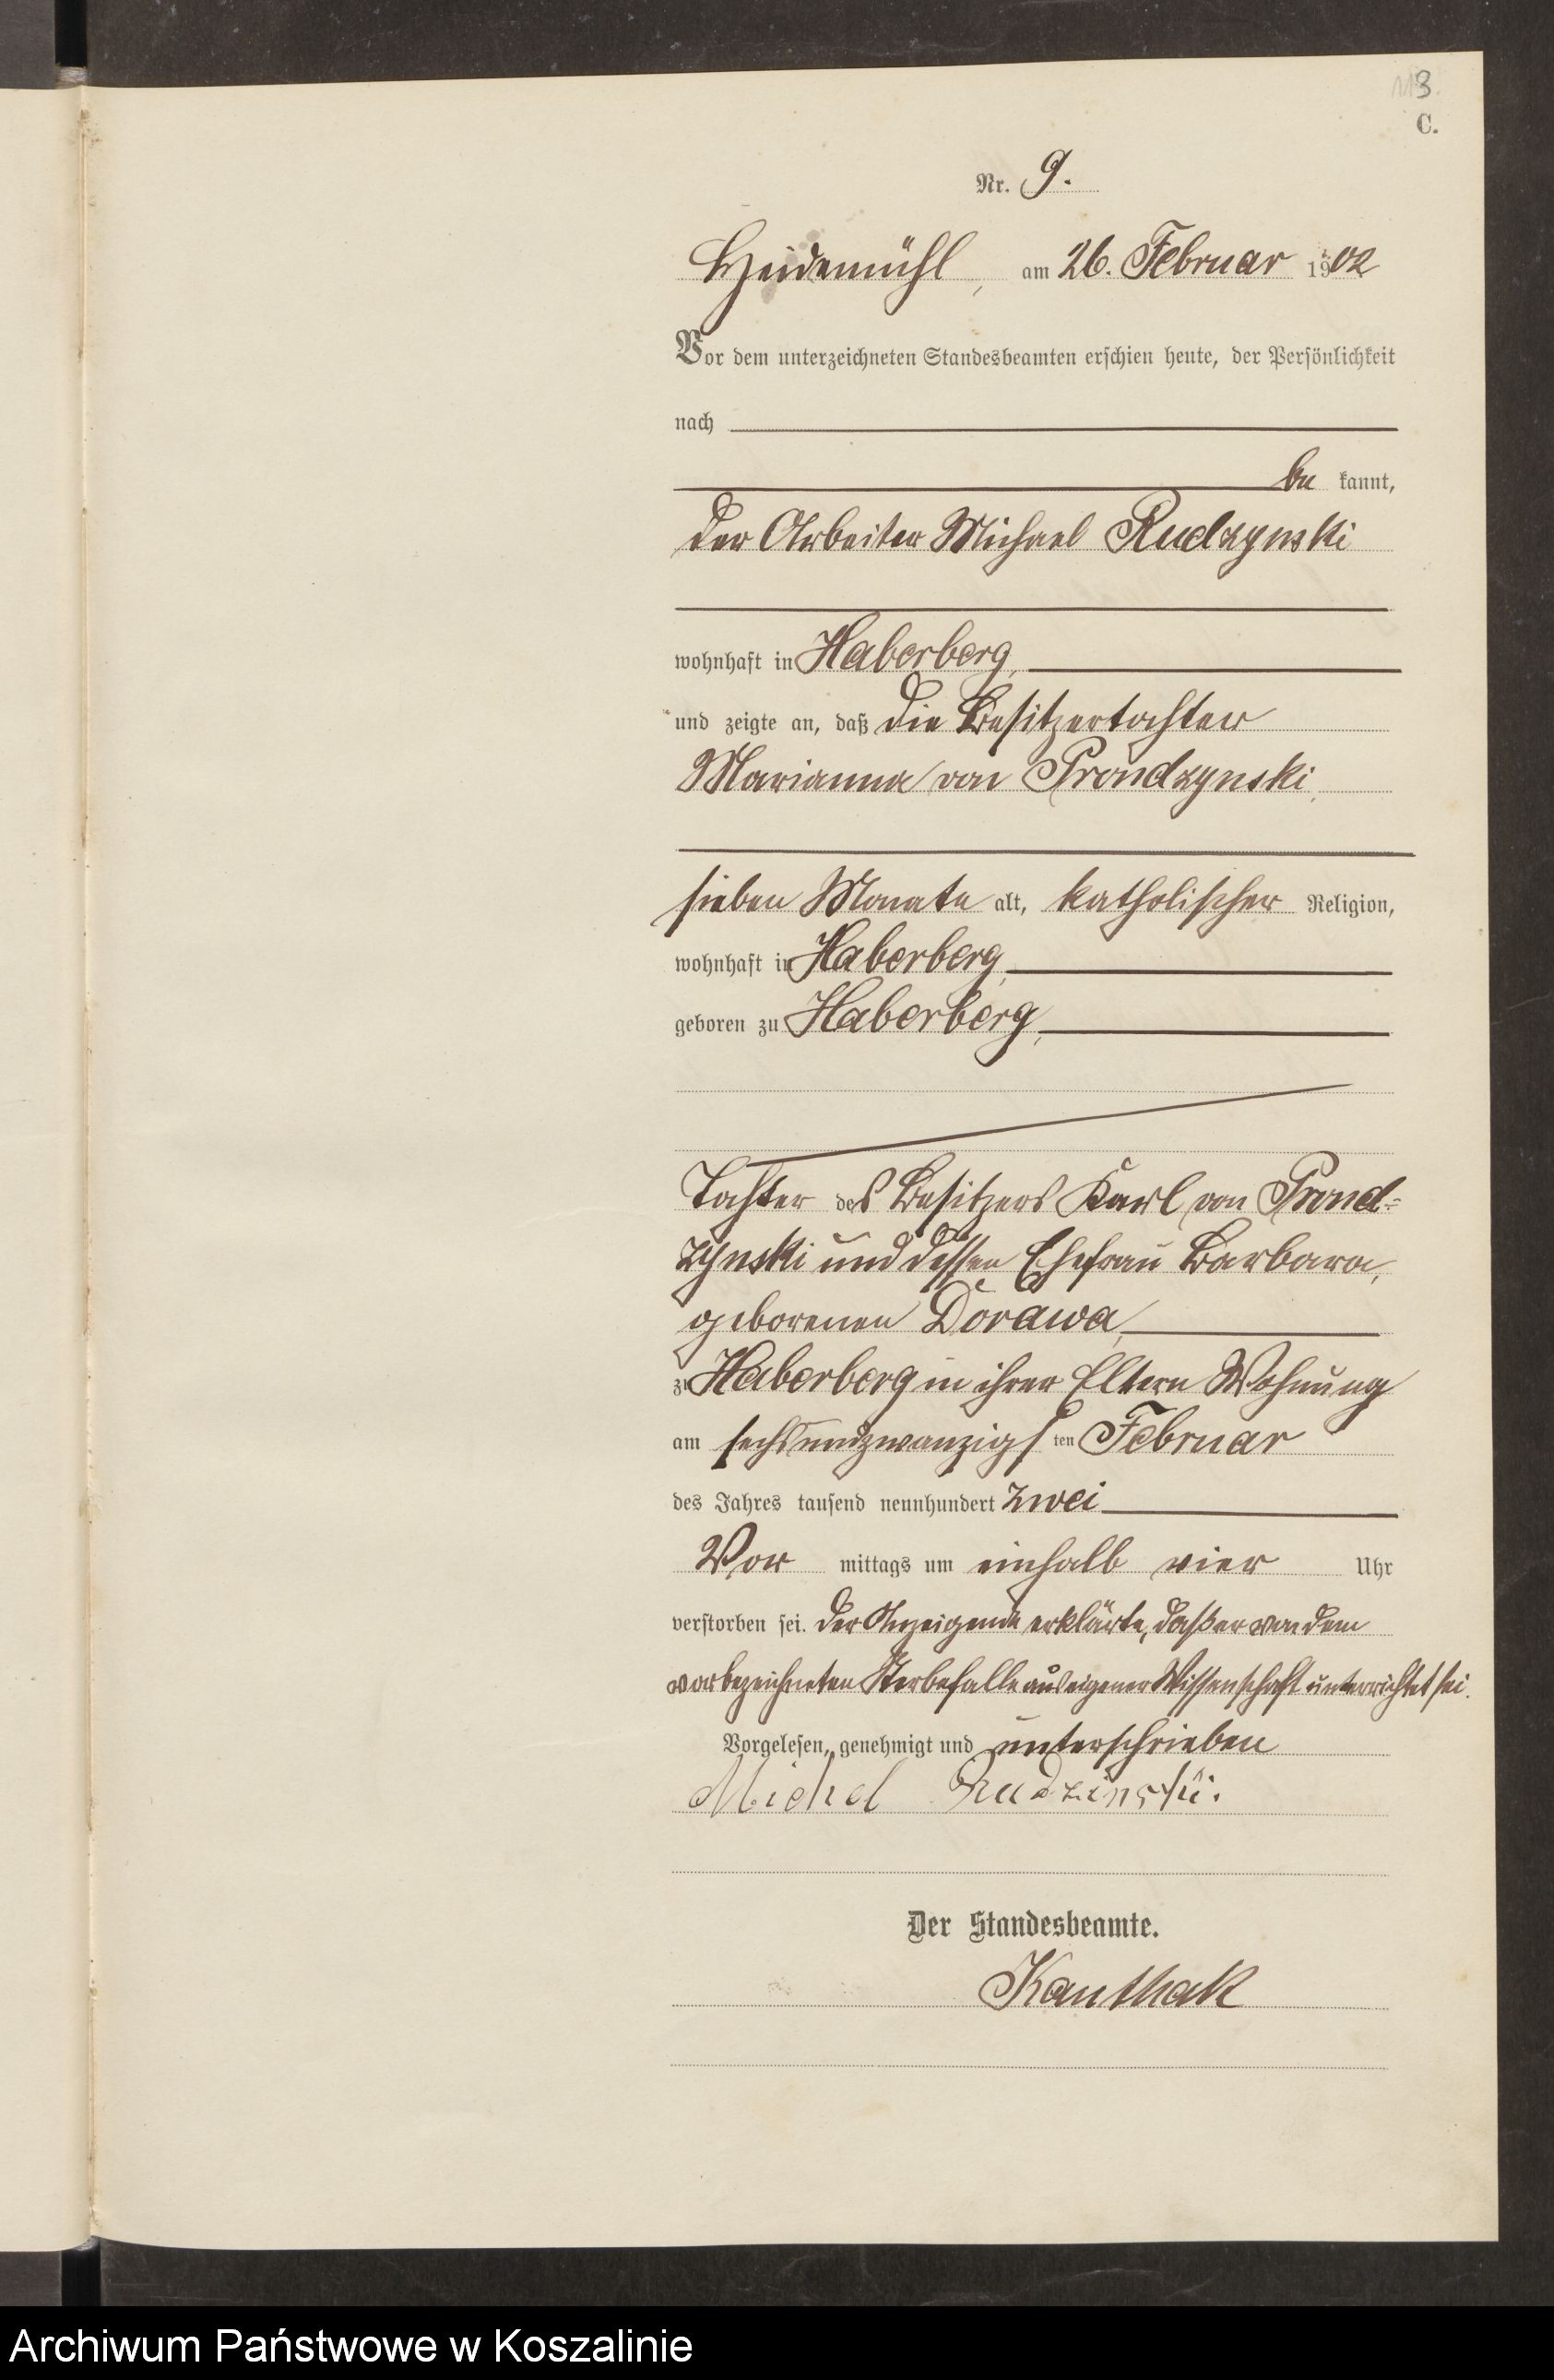 113.
C.
Nr. 9.
Heidemühl, am 26. Februar 1902
Vor dem unterzeichneten Standesbeamten erschien heute, der Persönlichkeit
nach
be kannt,
der Arbeiter Michael Rudzynski
wohnhaft in Haberberg,
und zeigte an, daß die Besitzertochter
Marianna von Prondzynski,
sieben Monate alt, katholischer Religion,
wohnhaft in Haberberg,
geboren zu Haberberg,
Tochter des Besitzers Karl von Prond-
zynski und dessen Ehefrau Barbara,
geborenen Dorawa,
zu Haberberg in ihrer Eltern Wohnung
am sechsundzwanzigsten Februar
des Jahres tausend neunhundert zwei
Vor mittags um einhalb vier Uhr
verstorben sei. Der Anzeigende erklärte, daß er von dem
vorbezeichneten Sterbefalle aus eigener Wissenschaft unterrichtet sei.
Vorgelesen, genehmigt und unterschrieben
Michel Rudzinski.
Der Standesbeamte.
Kauthak
Archiwum Państwowe w Koszalinie